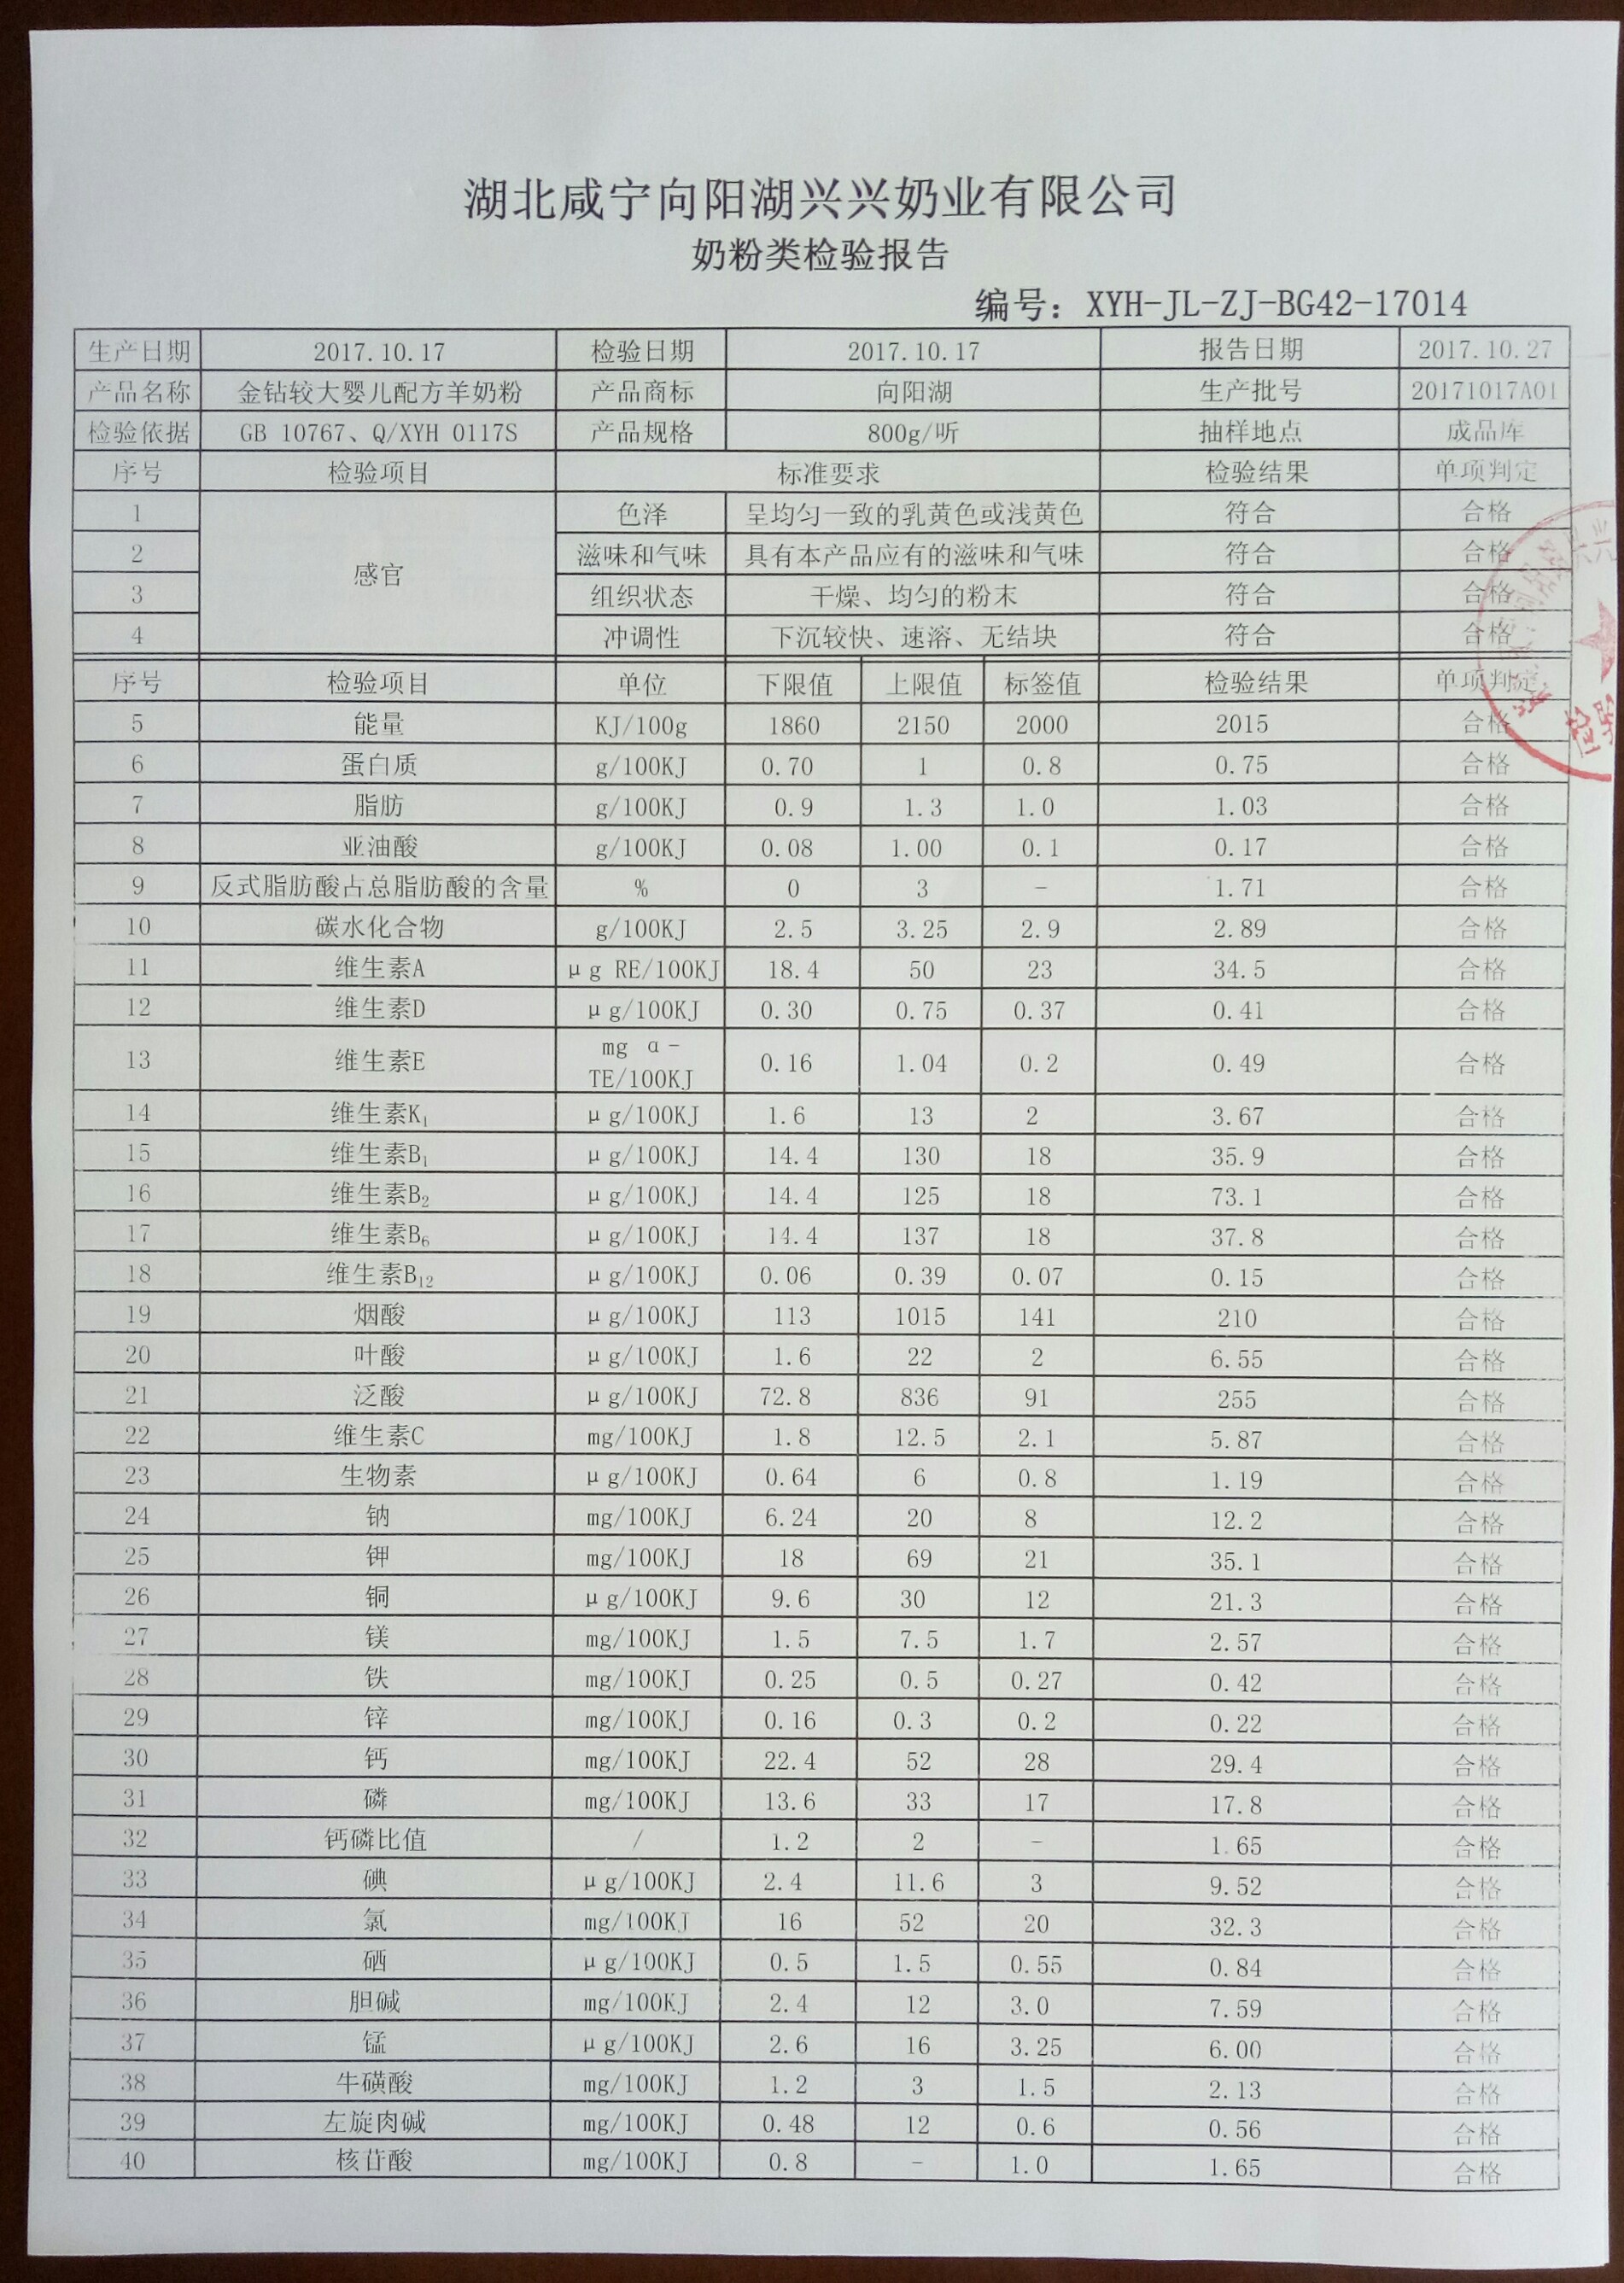 湖北咸宁向阳湖兴兴奶业有限公司
奶粉类检验报告
编号: XYH-JL-ZJ-BG42-17014
生产日期 2017.10.17 检验日期 2017.10.17 报告日期 2017.10.27
产品名称 金钻较大婴儿配方羊奶粉 产品商标 向阳湖 生产批号 20171017A01
检验依据 GB 10767、Q/XYH 0117S 产品规格 800g/听 抽样地点 成品库
序号 检验项目 标准要求 检验结果 单项判定
1 感官 色泽 呈均匀一致的乳黄色或浅黄色 符合 合格
2 滋味和气味 具有本产品应有的滋味和气味 符合 合格
3 组织状态 干燥、均匀的粉末 符合 合格
4 冲调性 下沉较快、速溶、无结块 符合 合格
序号 检验项目 单位 下限值 上限值 标签值 检验结果 单项判定
5 能量 KJ/100g 1860 2150 2000 2015 合格
6 蛋白质 g/100KJ 0.70 1 0.8 0.75 合格
7 脂肪 g/100KJ 0.9 1.3 1.0 1.03 合格
8 亚油酸 g/100KJ 0.08 1.00 0.1 0.17 合格
9 反式脂肪酸占总脂肪酸的含量 % 0 3 - 1.71 合格
10 碳水化合物 g/100KJ 2.5 3.25 2.9 2.89 合格
11 维生素A μg RE/100KJ 18.4 50 23 34.5 合格
12 维生素D μg/100KJ 0.30 0.75 0.37 0.41 合格
13 维生素E mg α-TE/100KJ 0.16 1.04 0.2 0.49 合格
14 维生素K₁ μg/100KJ 1.6 13 2 3.67 合格
15 维生素B₁ μg/100KJ 14.4 130 18 35.9 合格
16 维生素B₂ μg/100KJ 14.4 125 18 73.1 合格
17 维生素B₆ μg/100KJ 14.4 137 18 37.8 合格
18 维生素B₁₂ μg/100KJ 0.06 0.39 0.07 0.15 合格
19 烟酸 μg/100KJ 113 1015 141 210 合格
20 叶酸 μg/100KJ 1.6 22 2 6.55 合格
21 泛酸 μg/100KJ 72.8 836 91 255 合格
22 维生素C mg/100KJ 1.8 12.5 2.1 5.87 合格
23 生物素 μg/100KJ 0.64 6 0.8 1.19 合格
24 钠 mg/100KJ 6.24 20 8 12.2 合格
25 钾 mg/100KJ 18 69 21 35.1 合格
26 铜 μg/100KJ 9.6 30 12 21.3 合格
27 镁 mg/100KJ 1.5 7.5 1.7 2.57 合格
28 铁 mg/100KJ 0.25 0.5 0.27 0.42 合格
29 锌 mg/100KJ 0.16 0.3 0.2 0.22 合格
30 钙 mg/100KJ 22.4 52 28 29.4 合格
31 磷 mg/100KJ 13.6 33 17 17.8 合格
32 钙磷比值 / 1.2 2 - 1.65 合格
33 碘 μg/100KJ 2.4 11.6 3 9.52 合格
34 氯 mg/100KJ 16 52 20 32.3 合格
35 硒 μg/100KJ 0.5 1.5 0.55 0.84 合格
36 胆碱 mg/100KJ 2.4 12 3.0 7.59 合格
37 锰 μg/100KJ 2.6 16 3.25 6.00 合格
38 牛磺酸 mg/100KJ 1.2 3 1.5 2.13 合格
39 左旋肉碱 mg/100KJ 0.48 12 0.6 0.56 合格
40 核苷酸 mg/100KJ 0.8 - 1.0 1.65 合格